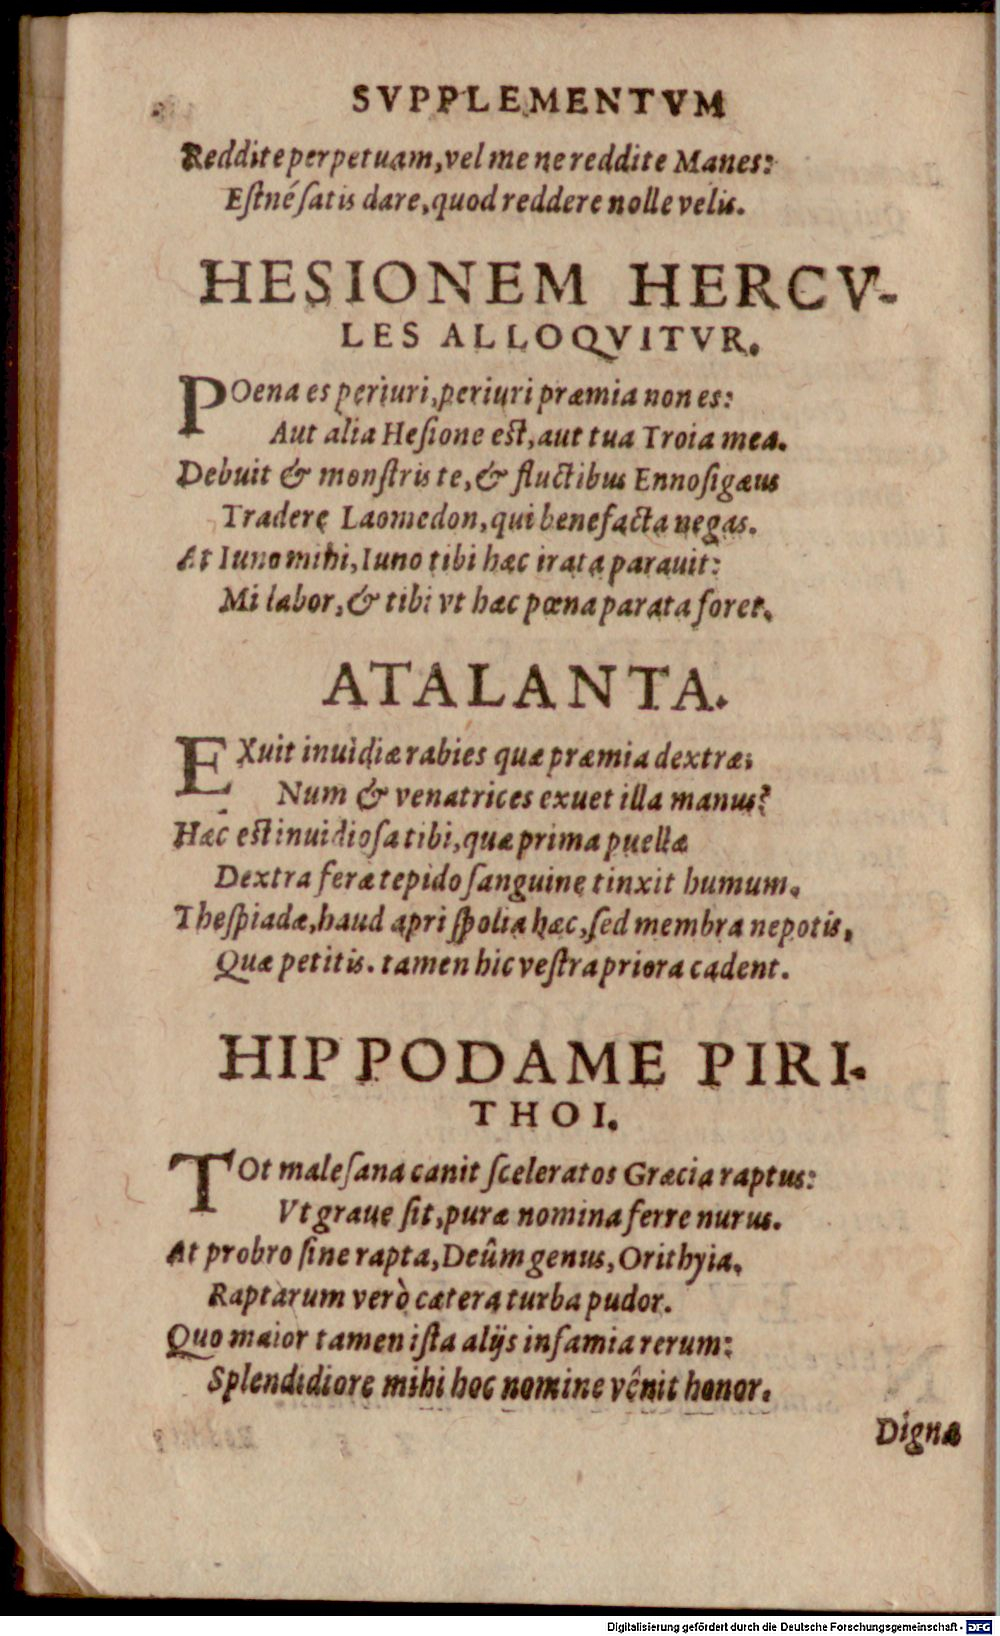 SVPPLEMENTVM
Reddite perpetuam, vel me ne reddite Manes:
Estné satis dare, quod reddere nolle velis.
HESIONEM HERCV-
LES ALLOQVITVR.
POena es periuri, periuri præmia non es:
Aut alia Hesione est, aut tua Troia mea.
Debuit & monstris te, & fluctibus Ennosigæus
Tradere Laomedon, qui benefacta negas.
At Iuno mihi, Iuno tibi hæc irata parauit:
Mi labor, & tibi vt hæc pœna parata foret.
ATALANTA.
EXuit inuidiæ rabies quæ præmia dextræ;
Num & venatrices exuet illa manus?
Hæc est inuidiosa tibi, quæ prima puellæ
Dextra feræ tepido sanguine tinxit humum.
Thespiadæ, haud apri spolia hæc, sed membra nepotis,
Quæ petitis. tamen hic vestra priora cadent.
HIPPODAME PIRI-
THOI.
TOt malesana canit sceleratos Græcia raptus:
Vt graue sit, puræ nomina ferre nurus.
At probro sine rapta, Deûm genus, Orithyia,
Raptarum verò cætera turba pudor.
Quo maior tamen ista alijs infamia rerum:
Splendidiore mihi hoc nomine vênit honor.
Dignæ
Digitalisierung gefördert durch die Deutsche Forschungsgemeinschaft - DFG